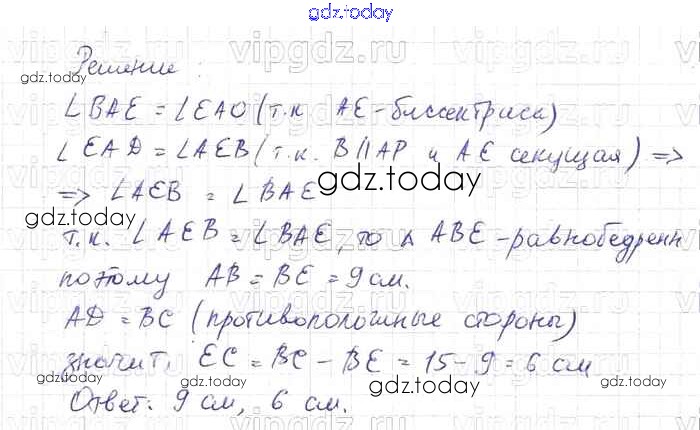 gdz.today
vipgdz.ru
Решение
gdz.today
∠BAE = ∠EAD (т.к AE - биссектриса)
∠EAD = ∠AEB (т.к. B || AP и AE секущая) =>
=> ∠AEB = ∠BAE
gdz.today
gdz.today
т.к. ∠AEB = ∠BAE, то △ ABE - равнобедренн
поэтому AB = BE = 9 см.
AD = BC (противоположные стороны)
значит, EC = BC - BE = 15 - 9 = 6 см
gdz.today
gdz.today
gdz.today
Ответ: 9 см, 6 см.